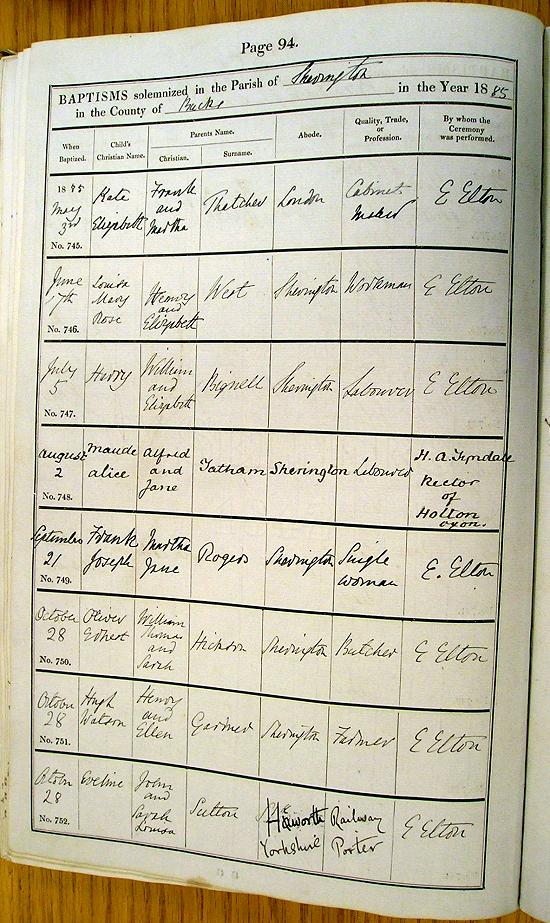 Page 94.
BAPTISMS solemnized in the Parish of Sherington
in the County of Bucks in the Year 1885
When Baptized. Child's Christian Name. Parents Name. Christian. Surname. Abode. Quality, Trade, or Profession. By whom the Ceremony was performed.
1885 May 3rd No. 745. Kate Elizabeth Frank and Martha Thatcher London Cabinet Maker E Elton
June 17th No. 746. Louisa Mary Rose Henry and Elizabeth West Sherington Workman E Elton
July 5 No. 747. Harry William and Elizabeth Bignell Sherington Labourer E Elton
August 2 No. 748. Maude Alice Alfred and Jane Tatham Sherington Labourer H. A. Tyndale Rector of Holton Oxon.
September 21 No. 749. Frank Joseph Martha Jane Rogers Sherington Single Woman E. Elton
October 28 No. 750. Oliver Egbert William Thomas and Sarah Hickson Sherington Butcher E Elton
October 28 No. 751. Hugh Watson Henry and Ellen Gardner Sherington Farmer E Elton
October 28 No. 752. Eveline John and Sarah Louisa Sutton Haworth Yorkshire Railway Porter E Elton